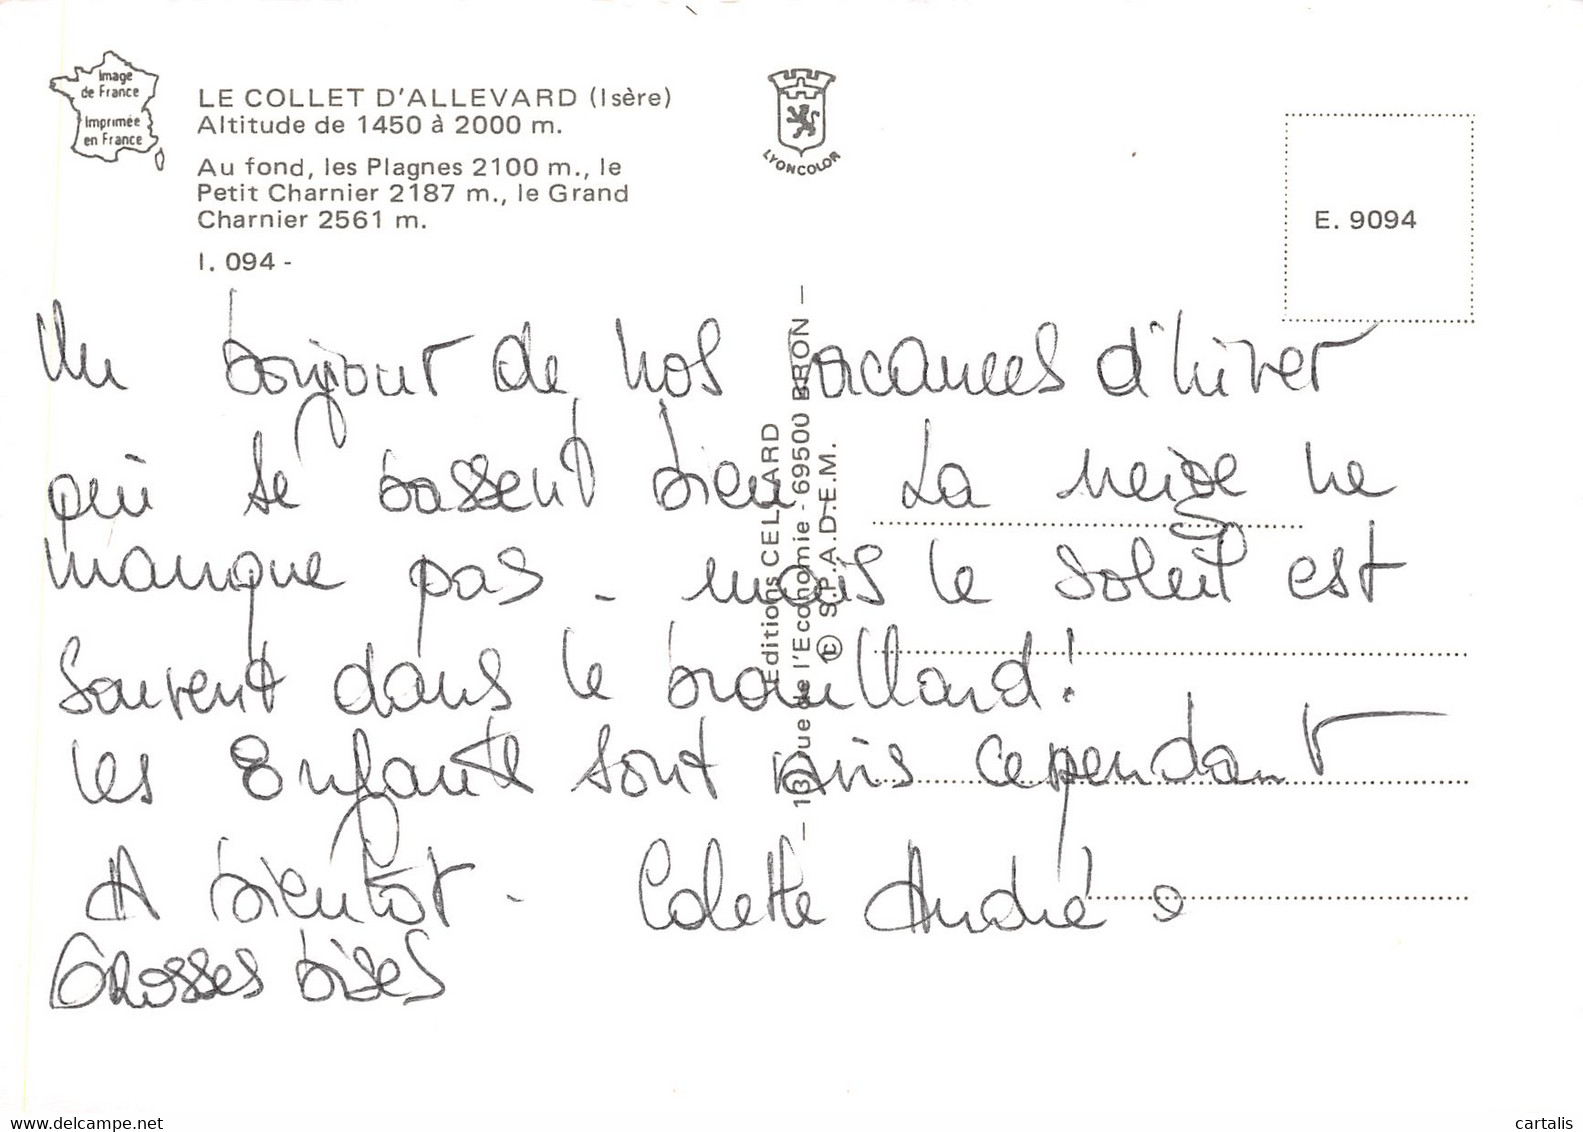 Image
de France
Imprimée
en France
LE COLLET D'ALLEVARD (Isère)
Altitude de 1450 à 2000 m.
Au fond, les Plagnes 2100 m., le
Petit Charnier 2187 m., le Grand
Charnier 2561 m.
I. 094 -
LYONCOLOR
E. 9094
Editions CELLARD
— 13, rue de l'Economie - 69500 BRON —
© S.P.A.D.E.M.
Un bonjour de nos vacances d'hiver
qui se passent bien La neige ne
manque pas - mais le soleil est
souvent dans le brouillard!
Les Enfants sont ravis cependant
A bientôt - Colette André
Grosses bises
delcampe.net
cartalis